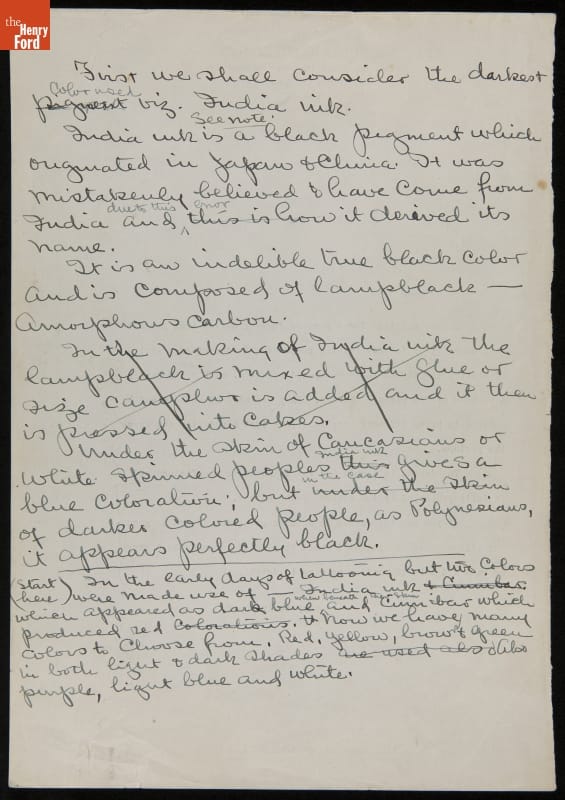 the
Henry
Ford
First we shall consider the darkest
color used
pigment viz. India ink.
See note.
India ink is a black pigment which
originated in Japan & China. It was
mistakenly believed to have come from
due to this error
India and this is how it derived its
name.
It is an indelible true black color
and is composed of lampblack —
amorphous carbon.
In the making of India ink the
lampblack is mixed with glue or
size camphor is added and it then
is pressed into cakes.
Under the skin of Caucasians or
India ink
white skinned peoples this gives a
in the case
blue coloration; but under the skin
of darker colored people, as Polynesians,
it appears perfectly black.
(start here) In the early days of tattooing but two colors
were made use of — India ink & Cinnibar
when beneath the skin
which appeared as dark blue and Cinnibar which
produced red colorations. Now we have many
colors to choose from. Red, yellow, brown & green
in both light & dark shades are used also Also
purple, light blue and white.